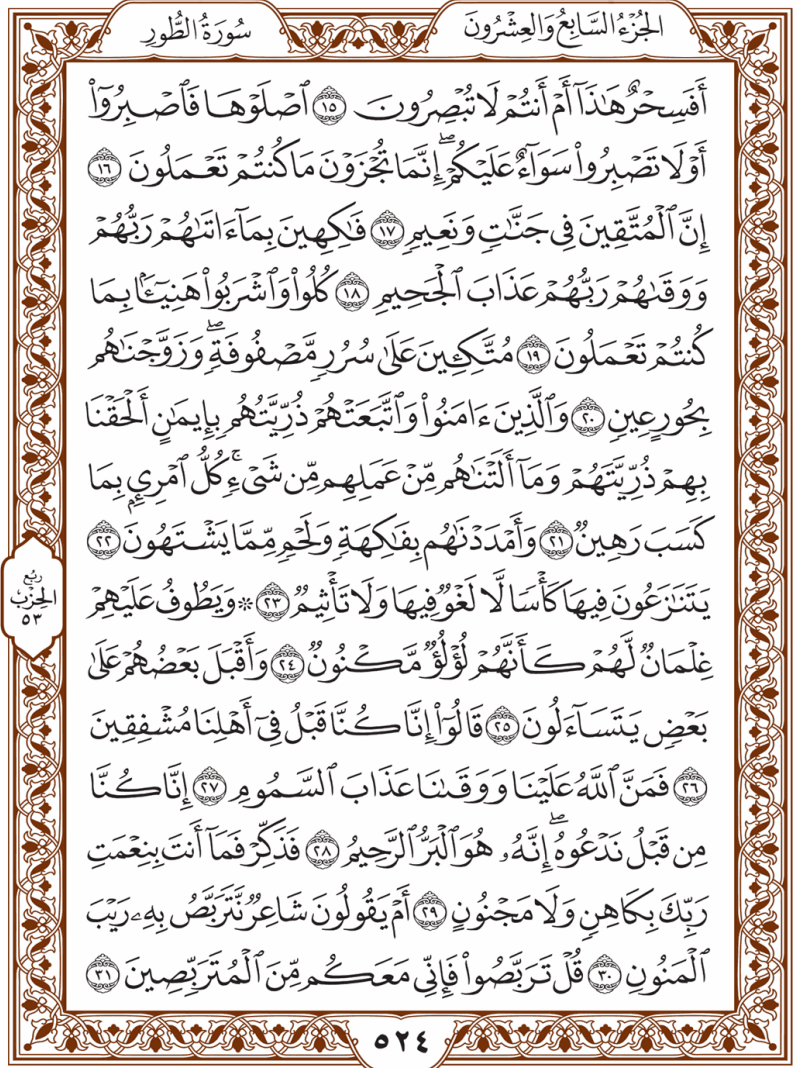 الجُزْءُ السَّابِعُ وَالعِشْرُونَ
سُورَةُ الطُّورِ
أَفَسِحْرٌ هَٰذَآ أَمْ أَنتُمْ لَا تُبْصِرُونَ ١٥ ٱصْلَوْهَا فَٱصْبِرُوٓا۟
أَوْ لَا تَصْبِرُوا۟ سَوَآءٌ عَلَيْكُمْ ۖ إِنَّمَا تُجْزَوْنَ مَا كُنتُمْ تَعْمَلُونَ ١٦
إِنَّ ٱلْمُتَّقِينَ فِى جَنَّٰتٍ وَنَعِيمٍ ١٧ فَٰكِهِينَ بِمَآ ءَاتَىٰهُمْ رَبُّهُمْ
وَوَقَىٰهُمْ رَبُّهُمْ عَذَابَ ٱلْجَحِيمِ ١٨ كُلُوا۟ وَٱشْرَبُوا۟ هَنِيٓـًٔۢا بِمَا
كُنتُمْ تَعْمَلُونَ ١٩ مُتَّكِـِٔينَ عَلَىٰ سُرُرٍ مَّصْفُوفَةٍ ۖ وَزَوَّجْنَٰهُم
بِحُورٍ عِينٍ ٢٠ وَٱلَّذِينَ ءَامَنُوا۟ وَٱتَّبَعَتْهُمْ ذُرِّيَّتُهُم بِإِيمَٰنٍ أَلْحَقْنَا
بِهِمْ ذُرِّيَّتَهُمْ وَمَآ أَلَتْنَٰهُم مِّنْ عَمَلِهِم مِّن شَىْءٍ ۚ كُلُّ ٱمْرِئٍۭ بِمَا
كَسَبَ رَهِينٌ ٢١ وَأَمْدَدْنَٰهُم بِفَٰكِهَةٍ وَلَحْمٍ مِّمَّا يَشْتَهُونَ ٢٢
يَتَنَٰزَعُونَ فِيهَا كَأْسًا لَّا لَغْوٌ فِيهَا وَلَا تَأْثِيمٌ ٢٣ ۞ وَيَطُوفُ عَلَيْهِمْ
غِلْمَانٌ لَّهُمْ كَأَنَّهُمْ لُؤْلُؤٌ مَّكْنُونٌ ٢٤ وَأَقْبَلَ بَعْضُهُمْ عَلَىٰ
بَعْضٍ يَتَسَآءَلُونَ ٢٥ قَالُوٓا۟ إِنَّا كُنَّا قَبْلُ فِىٓ أَهْلِنَا مُشْفِقِينَ
٢٦ فَمَنَّ ٱللَّهُ عَلَيْنَا وَوَقَىٰنَا عَذَابَ ٱلسَّمُومِ ٢٧ إِنَّا كُنَّا
مِن قَبْلُ نَدْعُوهُ ۖ إِنَّهُۥ هُوَ ٱلْبَرُّ ٱلرَّحِيمُ ٢٨ فَذَكِّرْ فَمَآ أَنتَ بِنِعْمَتِ
رَبِّكَ بِكَاهِنٍ وَلَا مَجْنُونٍ ٢٩ أَمْ يَقُولُونَ شَاعِرٌ نَّتَرَبَّصُ بِهِۦ رَيْبَ
ٱلْمَنُونِ ٣٠ قُلْ تَرَبَّصُوا۟ فَإِنِّى مَعَكُم مِّنَ ٱلْمُتَرَبِّصِينَ ٣١
رُبُع
الحِزْبِ
٥٣
٥٢٤